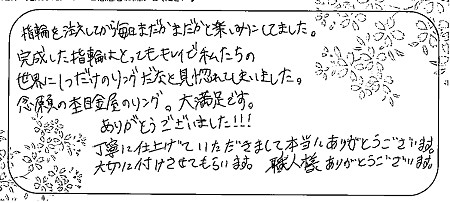 指輪を注文してから毎日まだかまだかと楽しみにしてました。
完成した指輪はとってもキレイで私たちの
世界に1つだけのリングだなと見惚れてしまいました。
念願の杢目金屋のリング。大満足です。
ありがとうございました!!!
丁寧に仕上げていただきまして本当にありがとうございます。
大切に付けさせてもらいます。職人様ありがとうございます。